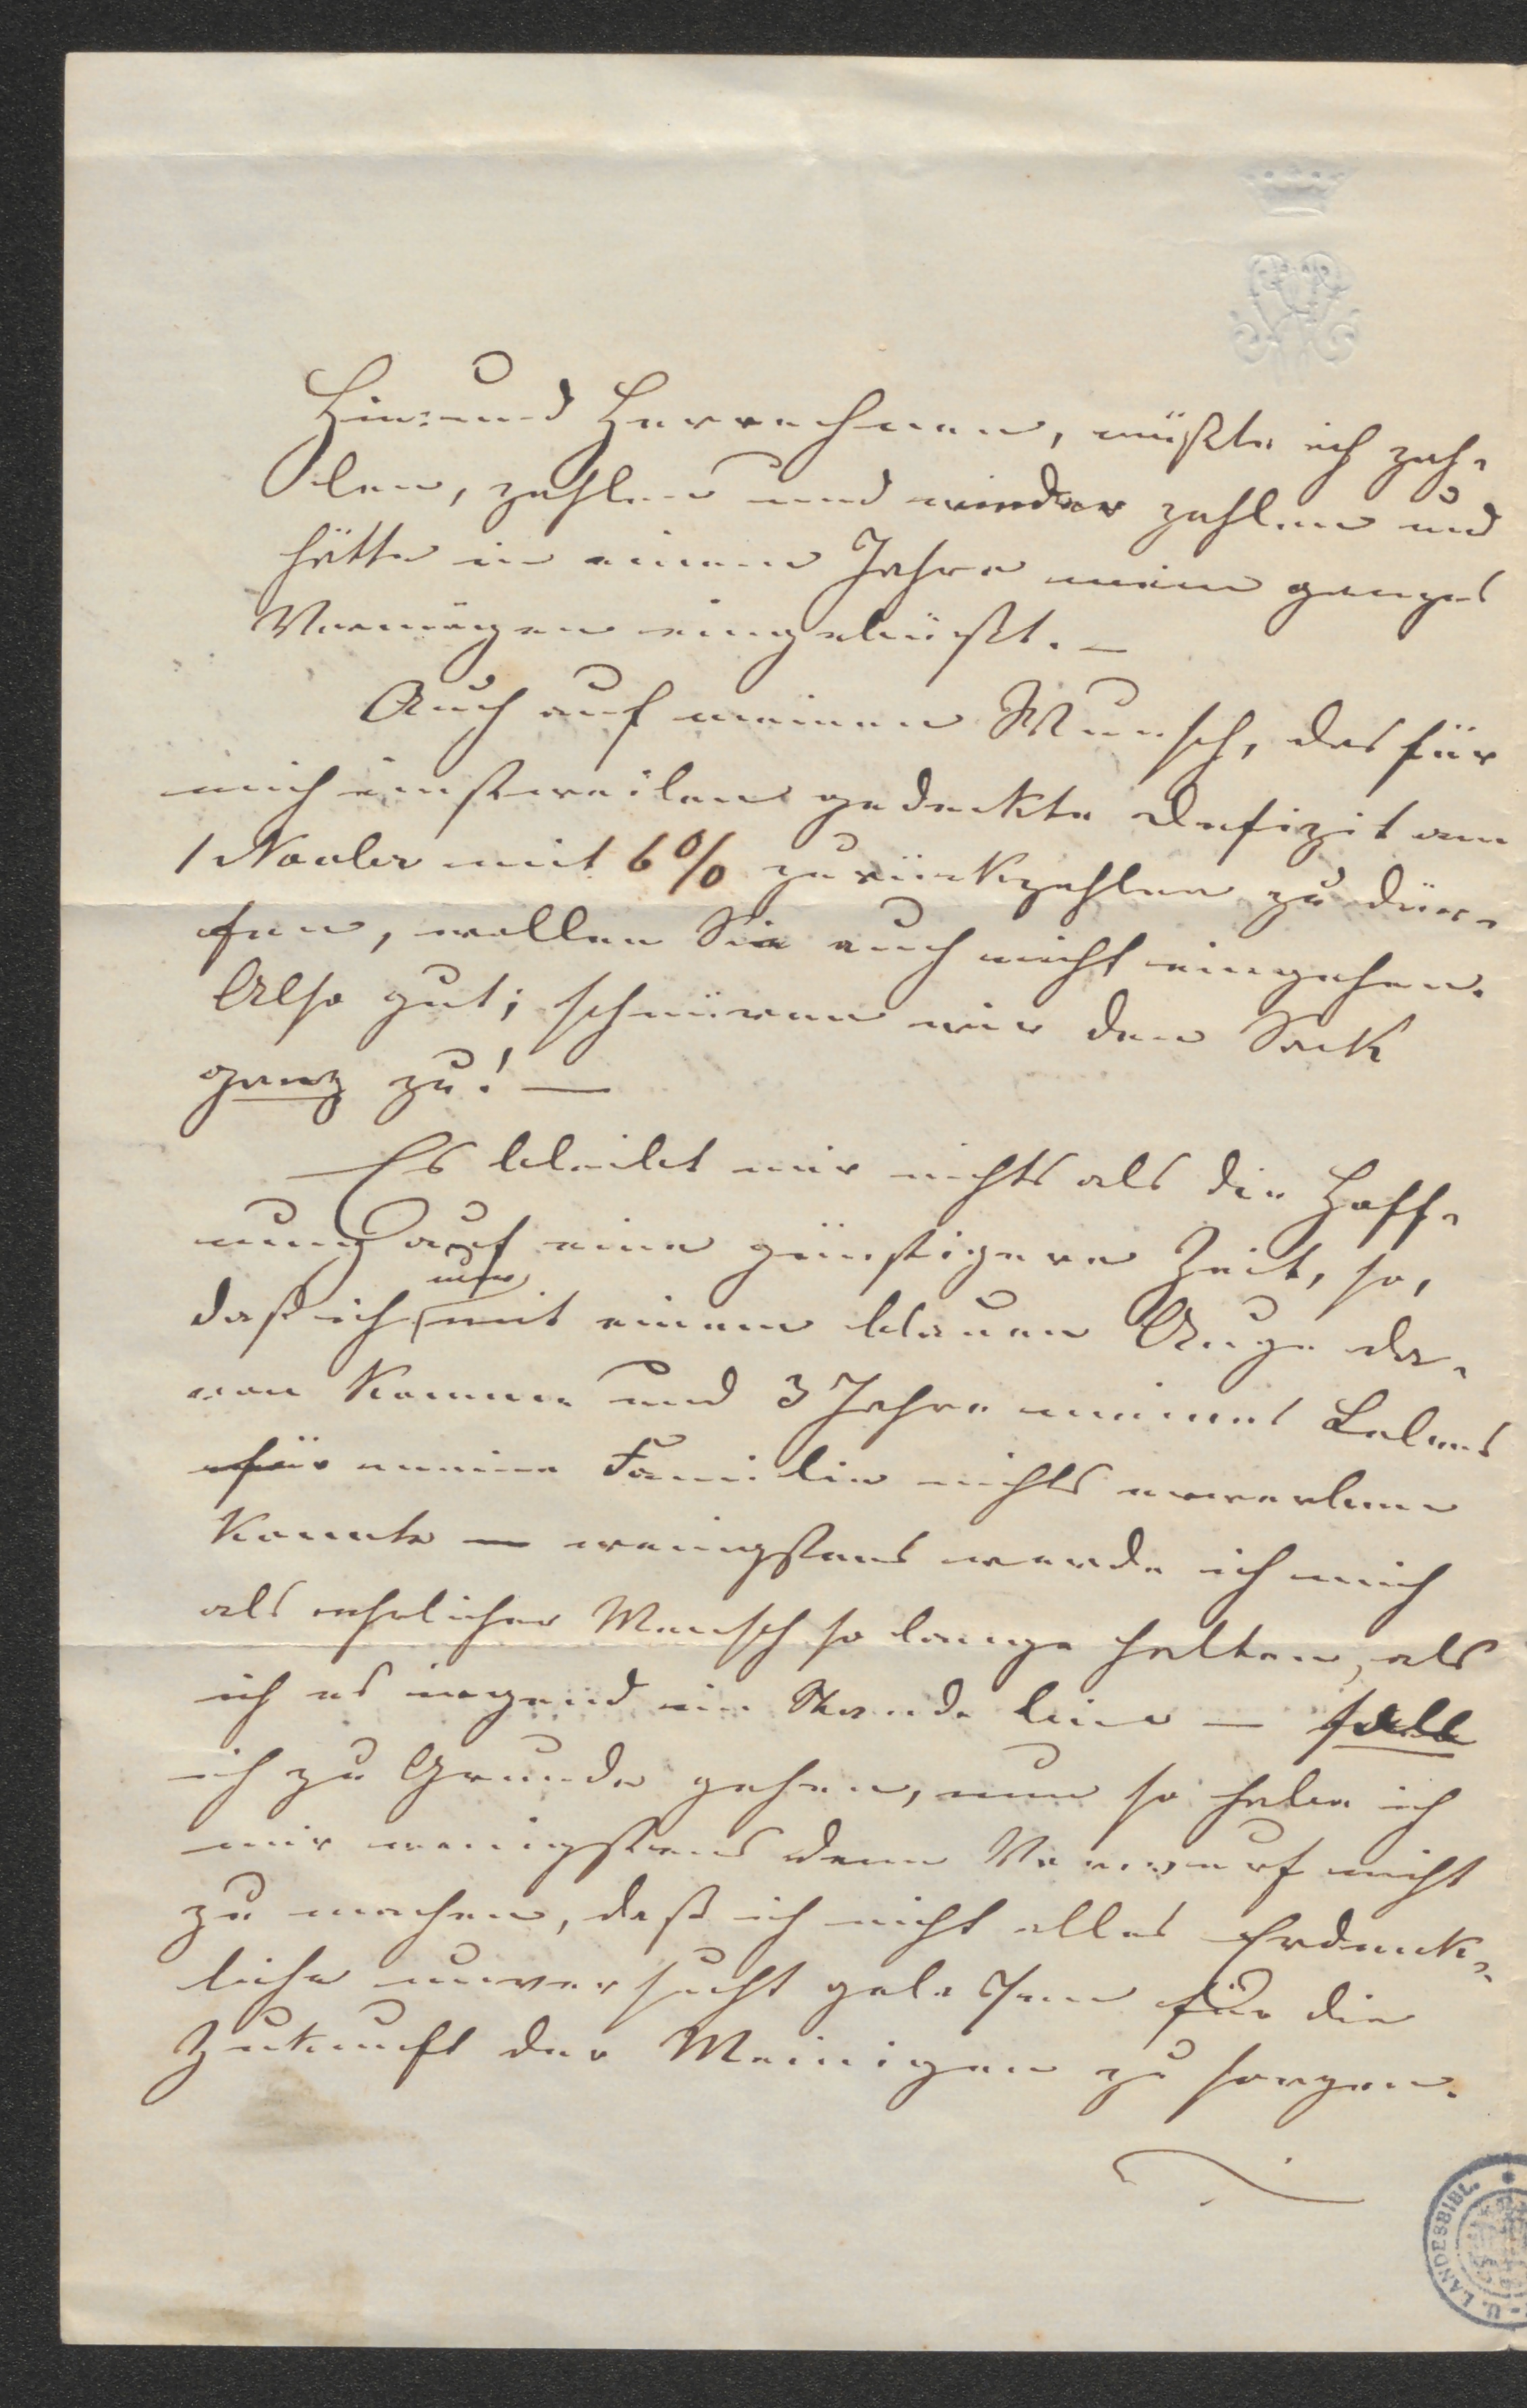 Hin= und Herrechnen, müßte ich zah=
len, zahlen und wieder zahlen und
hätte in einem Jahre mein ganzes
Vermögen eingebüßt. —
Auch auf meinen Wunsch, das für
mich einstweilen gedeckte Defizit am
1 Novbr mit 6% zurückzahlen zu dür=
fen, wollen Sie auch nicht eingehen.
Also gut; schnüren wir den Sack
ganz zu! —
Es bleibt mir nichts als die Hoff=
nung auf eine günstigere Zeit, so,
nur
daß ich mit einem blauen Auge da=
von komme und 3 Jahre meines Lebens
für meine Familie nichts erwerben
konnte — wenigstens werde ich mich
als ehrlicher Mensch so lange halten, als
ich es irgend im Stande bin — soll
ich zu Grunde gehen, nun so habe ich
mir wenigstens den Vorwurf nicht
zu machen, daß ich nicht alles Erdenk=
liche unversucht gelassen für die
Zukunft der Meinigen zu sorgen.
U. LANDESBIBL.